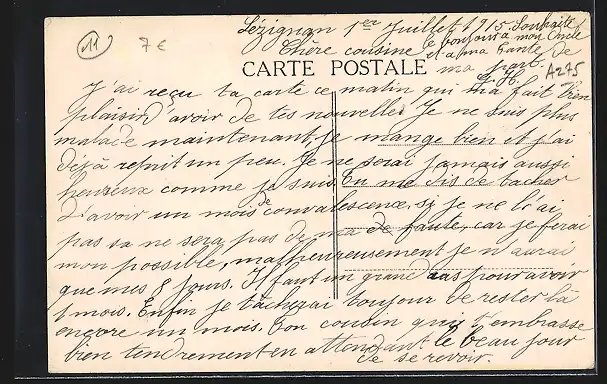 Lézignan 1er Juillet 1915. Souhaite
le bonjour a mon Oncle
et a ma tante de
ma part.
Chère cousine
11
7 €
A275
CARTE POSTALE
J'ai reçu ta carte ce matin qui m'a fait bien
plaisir d'avoir de tes nouvelles Je ne suis plus
malade maintenant, je mange bien et j'ai
déjà refait un peu. Je ne serai jamais aussi
heureux comme je suis. Tu me dis de tacher
d'avoir un mois de convalescence, si je ne l'ai
pas sa ne sera pas de ma de faute, car je ferai
mon possible, malheureusement je n'aurai
que mes 8 jours. Il faut un grand cas pour avoir
1 mois. Enfin je tacherai toujour de rester là
encore un mois. Ton cousin qui t'embrasse
bien tendrement en attendant le beau jour
de se revoir.